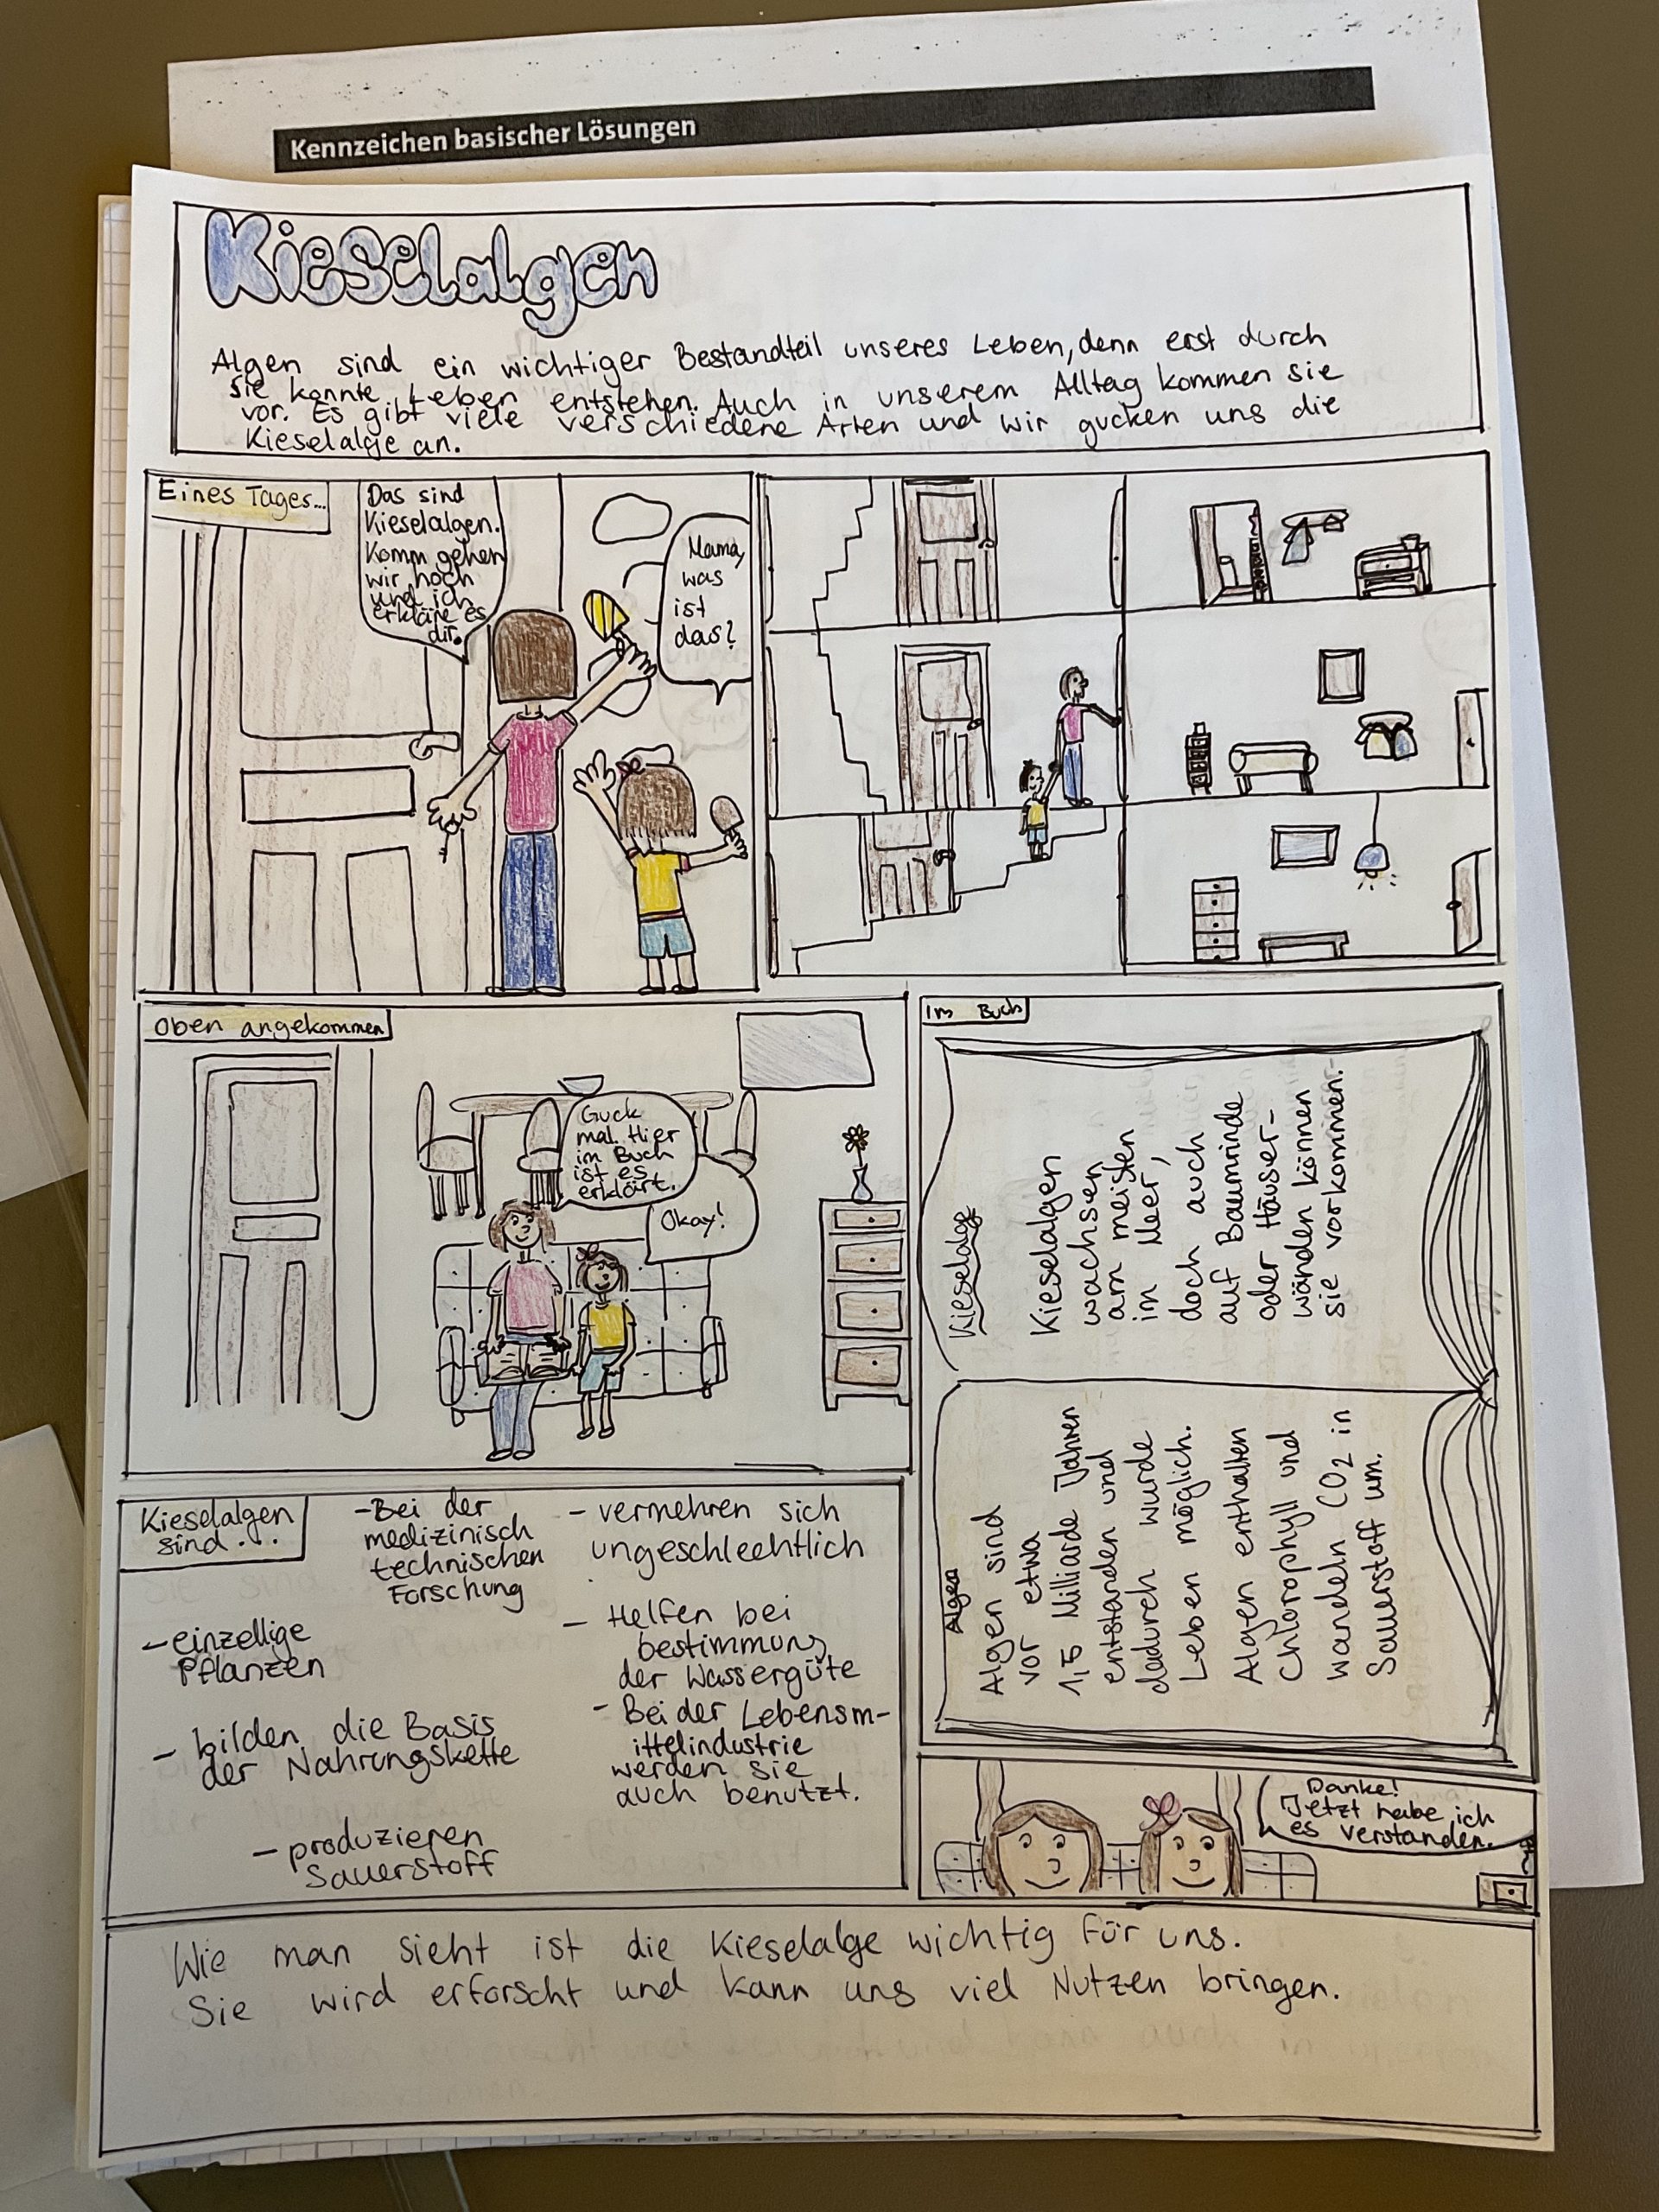 Kennzeichen basischer Lösungen
Kieselalgen
Algen sind ein wichtiger Bestandteil unseres Leben, denn erst durch
sie konnte Leben entstehen. Auch in unserem Alltag kommen sie
vor. Es gibt viele verschiedene Arten und wir gucken uns die
Kieselalge an.
Eines Tages...
Mama,
was
ist
das?
Das sind
Kieselalgen.
Komm gehen
wir hoch
und ich
erkläre es
dir.
Oben angekommen
Guck
mal. Hier
im Buch
ist es
erklärt.
Okay!
Im Buch
Algen
Algen sind
vor etwa
1,5 Milliarde Jahren
entstanden und
dadurch wurde
Leben möglich.
Algen enthalten
Chlorophyll und
wandeln CO2 in
Sauerstoff um.
Kieselalge
Kieselalgen
wachsen
am meisten
im Meer,
doch auch
auf Baumrinde
oder Häuser-
wänden können
sie vorkommen.
Kieselalgen
sind...
- einzellige
Pflanzen
- bilden die Basis
der Nahrungskette
- produzieren
Sauerstoff
- Bei der
medizinisch
technischen
Forschung
- vermehren sich
ungeschlechtlich
- Helfen bei
bestimmung
der Wassergüte
- Bei der Lebensm-
ittelindustrie
werden sie
auch benutzt.
Danke!
Jetzt habe ich
es verstanden.
Wie man sieht ist die Kieselalge wichtig für uns.
Sie wird erforscht und kann uns viel Nutzen bringen.